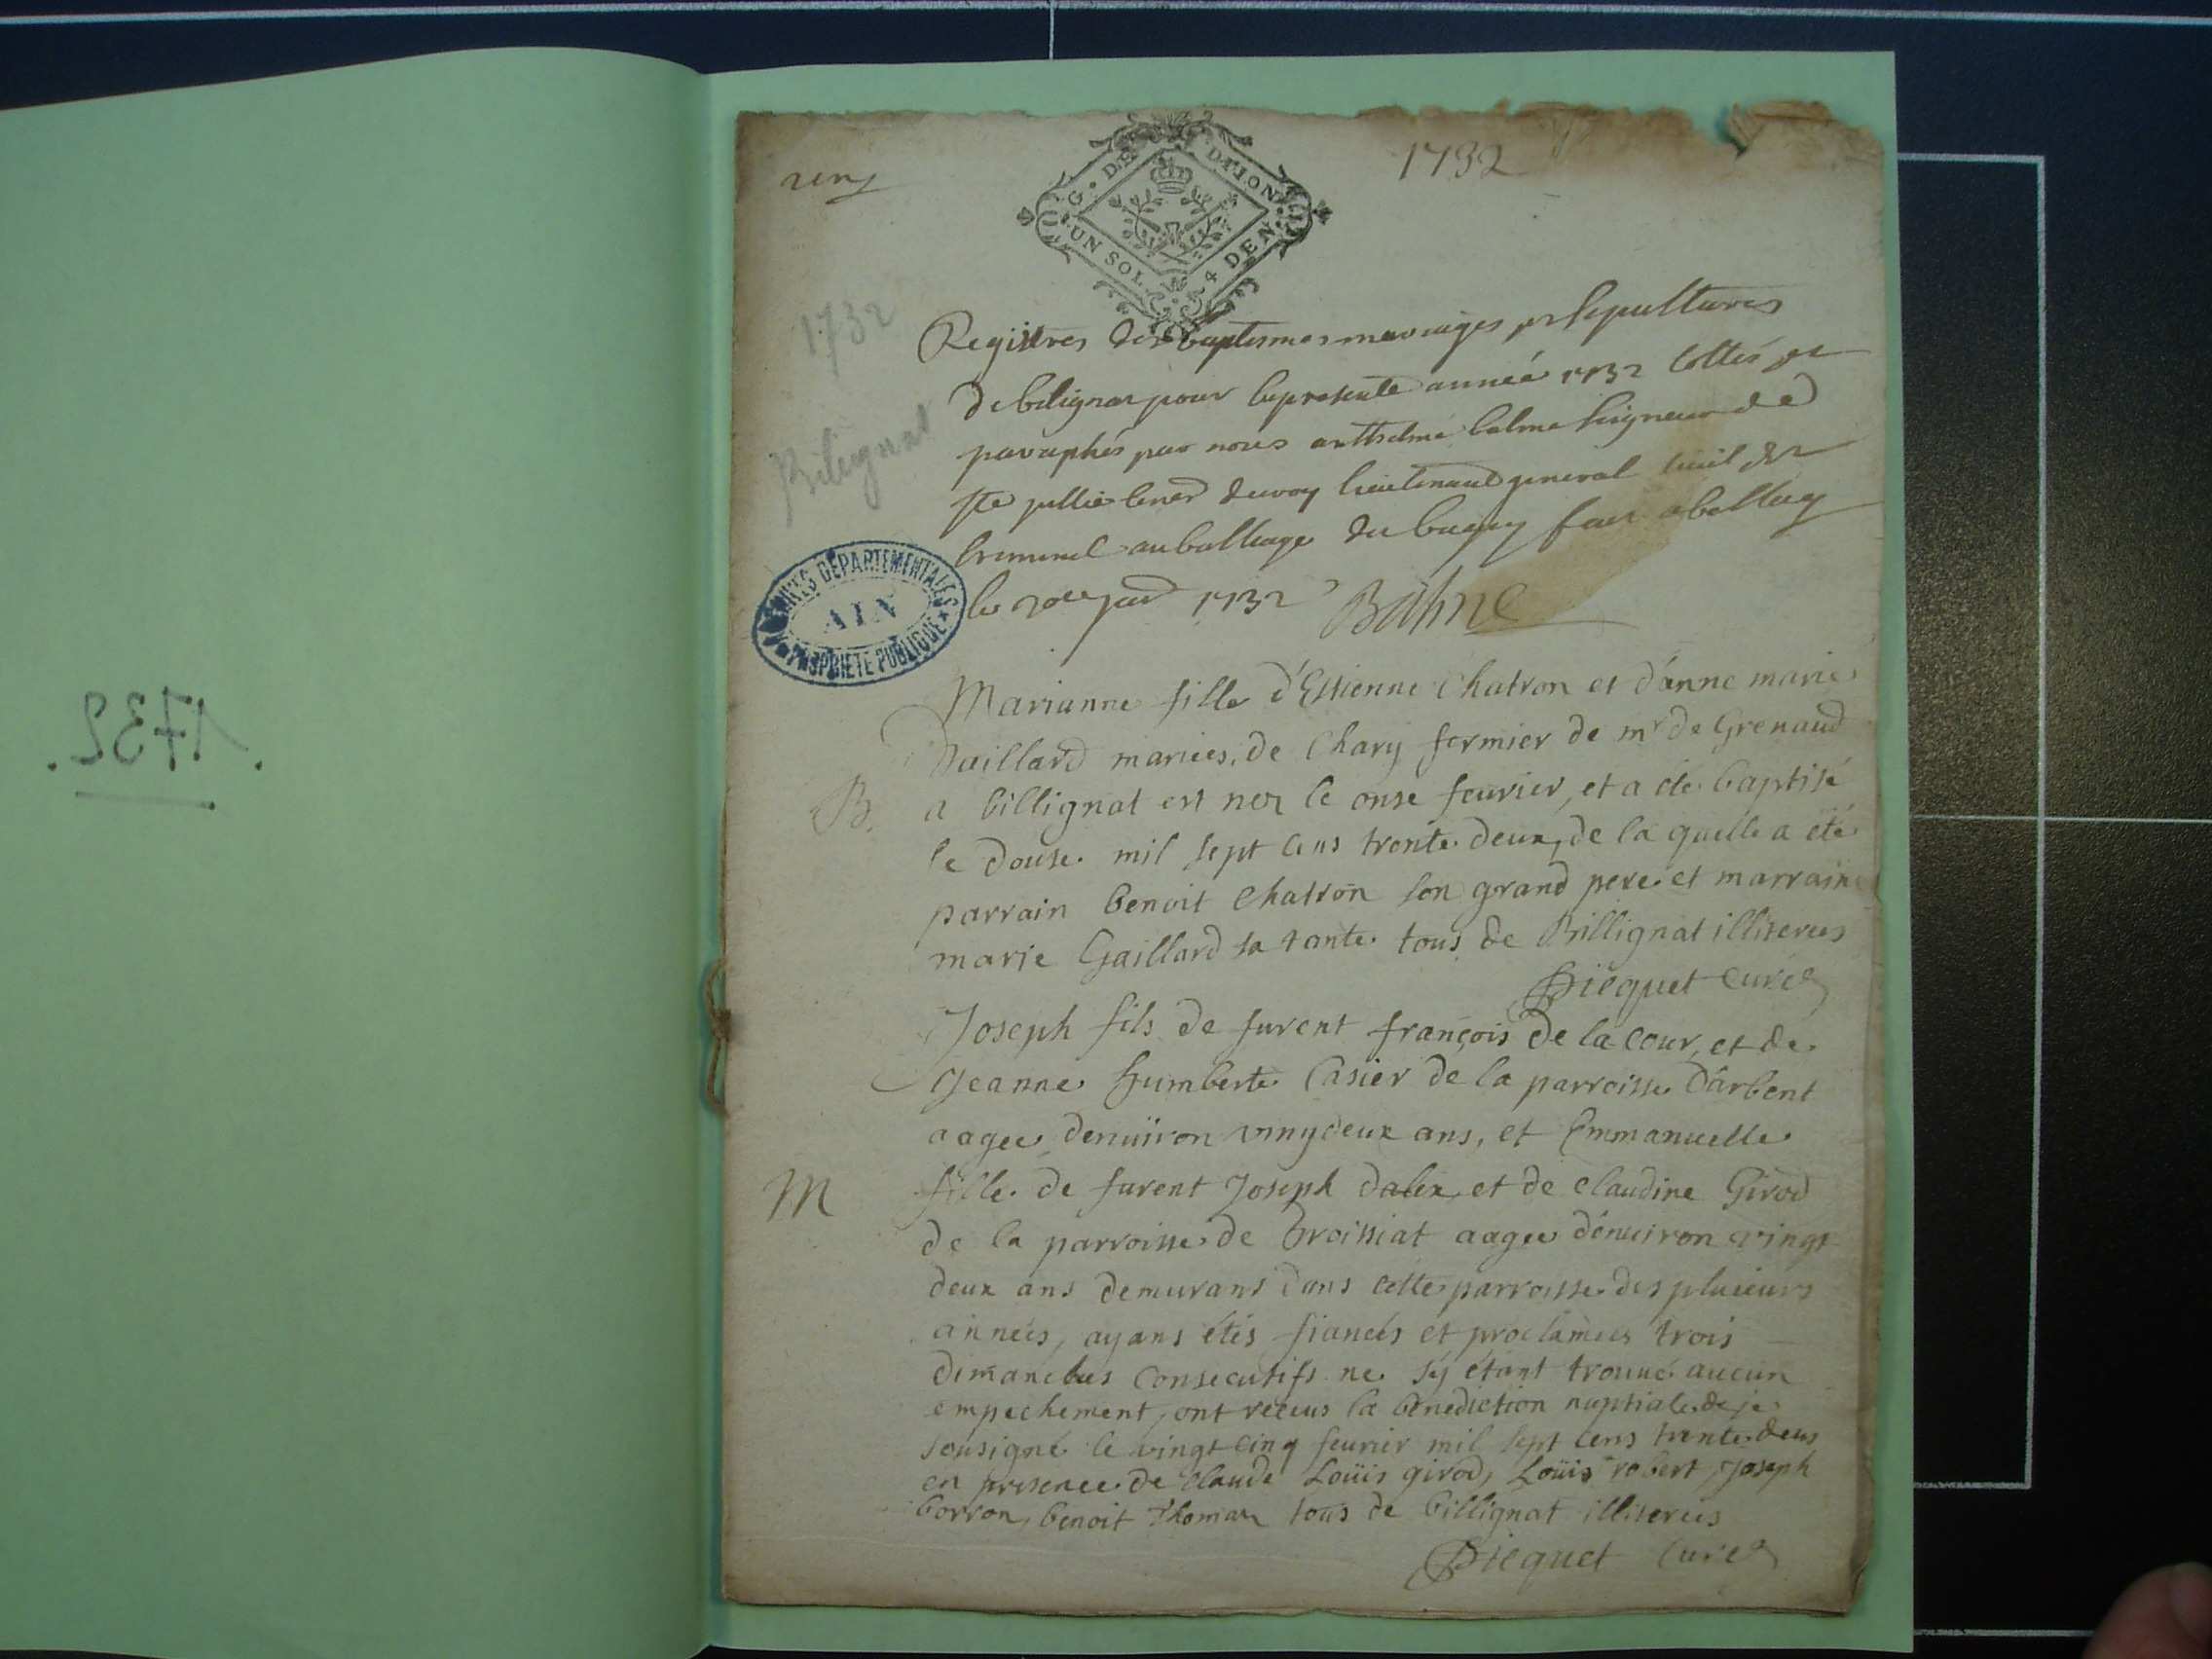 1732.
un
1732
G. DE DIJON
UN SOL 4 DEN
1732
Bilignat
Registres des baptesmes mariages et sepultures
de bilignat pour la presente année 1732 Cottés et
paraphés par nous antthelme balme seigneur de
Ste jullie du roy lieutenant general civil et
Criminel au balliage du bugey fait a belley
le 1732 Balme
ARCHIVES DÉPARTEMENTALES
AIN
PROPRIÉTÉ PUBLIQUE
Marianne fille d'Estienne Chatron et d'anne marie
Gaillard mariées, de Chary fermier de mr de Grenaud
B. a billignat est née le onse feurier, et a été baptisé
le douse mil sept cens trente deux, de la quelle a été
parrain benoit Chatron son grand pere et marraine
marie Gaillard sa tante tous de Billignat illiterées
Picquet Curé
Joseph fils de furent françois de la cour, et de
Jeanne humberte Casier de la parroisse d'arbent
aagée denuiron vinydeux ans, et Emmanuelle
M fille de furent Joseph dalex et de claudine Girod
de la parroisse de Broissiat aagée dénuiron vingt
deux ans demurans dans cette parroisse des pluieurs
années, ayans étés fiancés et proclamées trois
dimanches consecutifs ne sÿ étant trouué aucun
empechement, ont receus la benediction nuptiale de je
sousigné le vingt cinq feurier mil sept cens trente deus
en presence de claude Loüis girod, Loüis robert, Joseph
borron, benoit Thomas tous de billignat illiterées
Picquet Curé